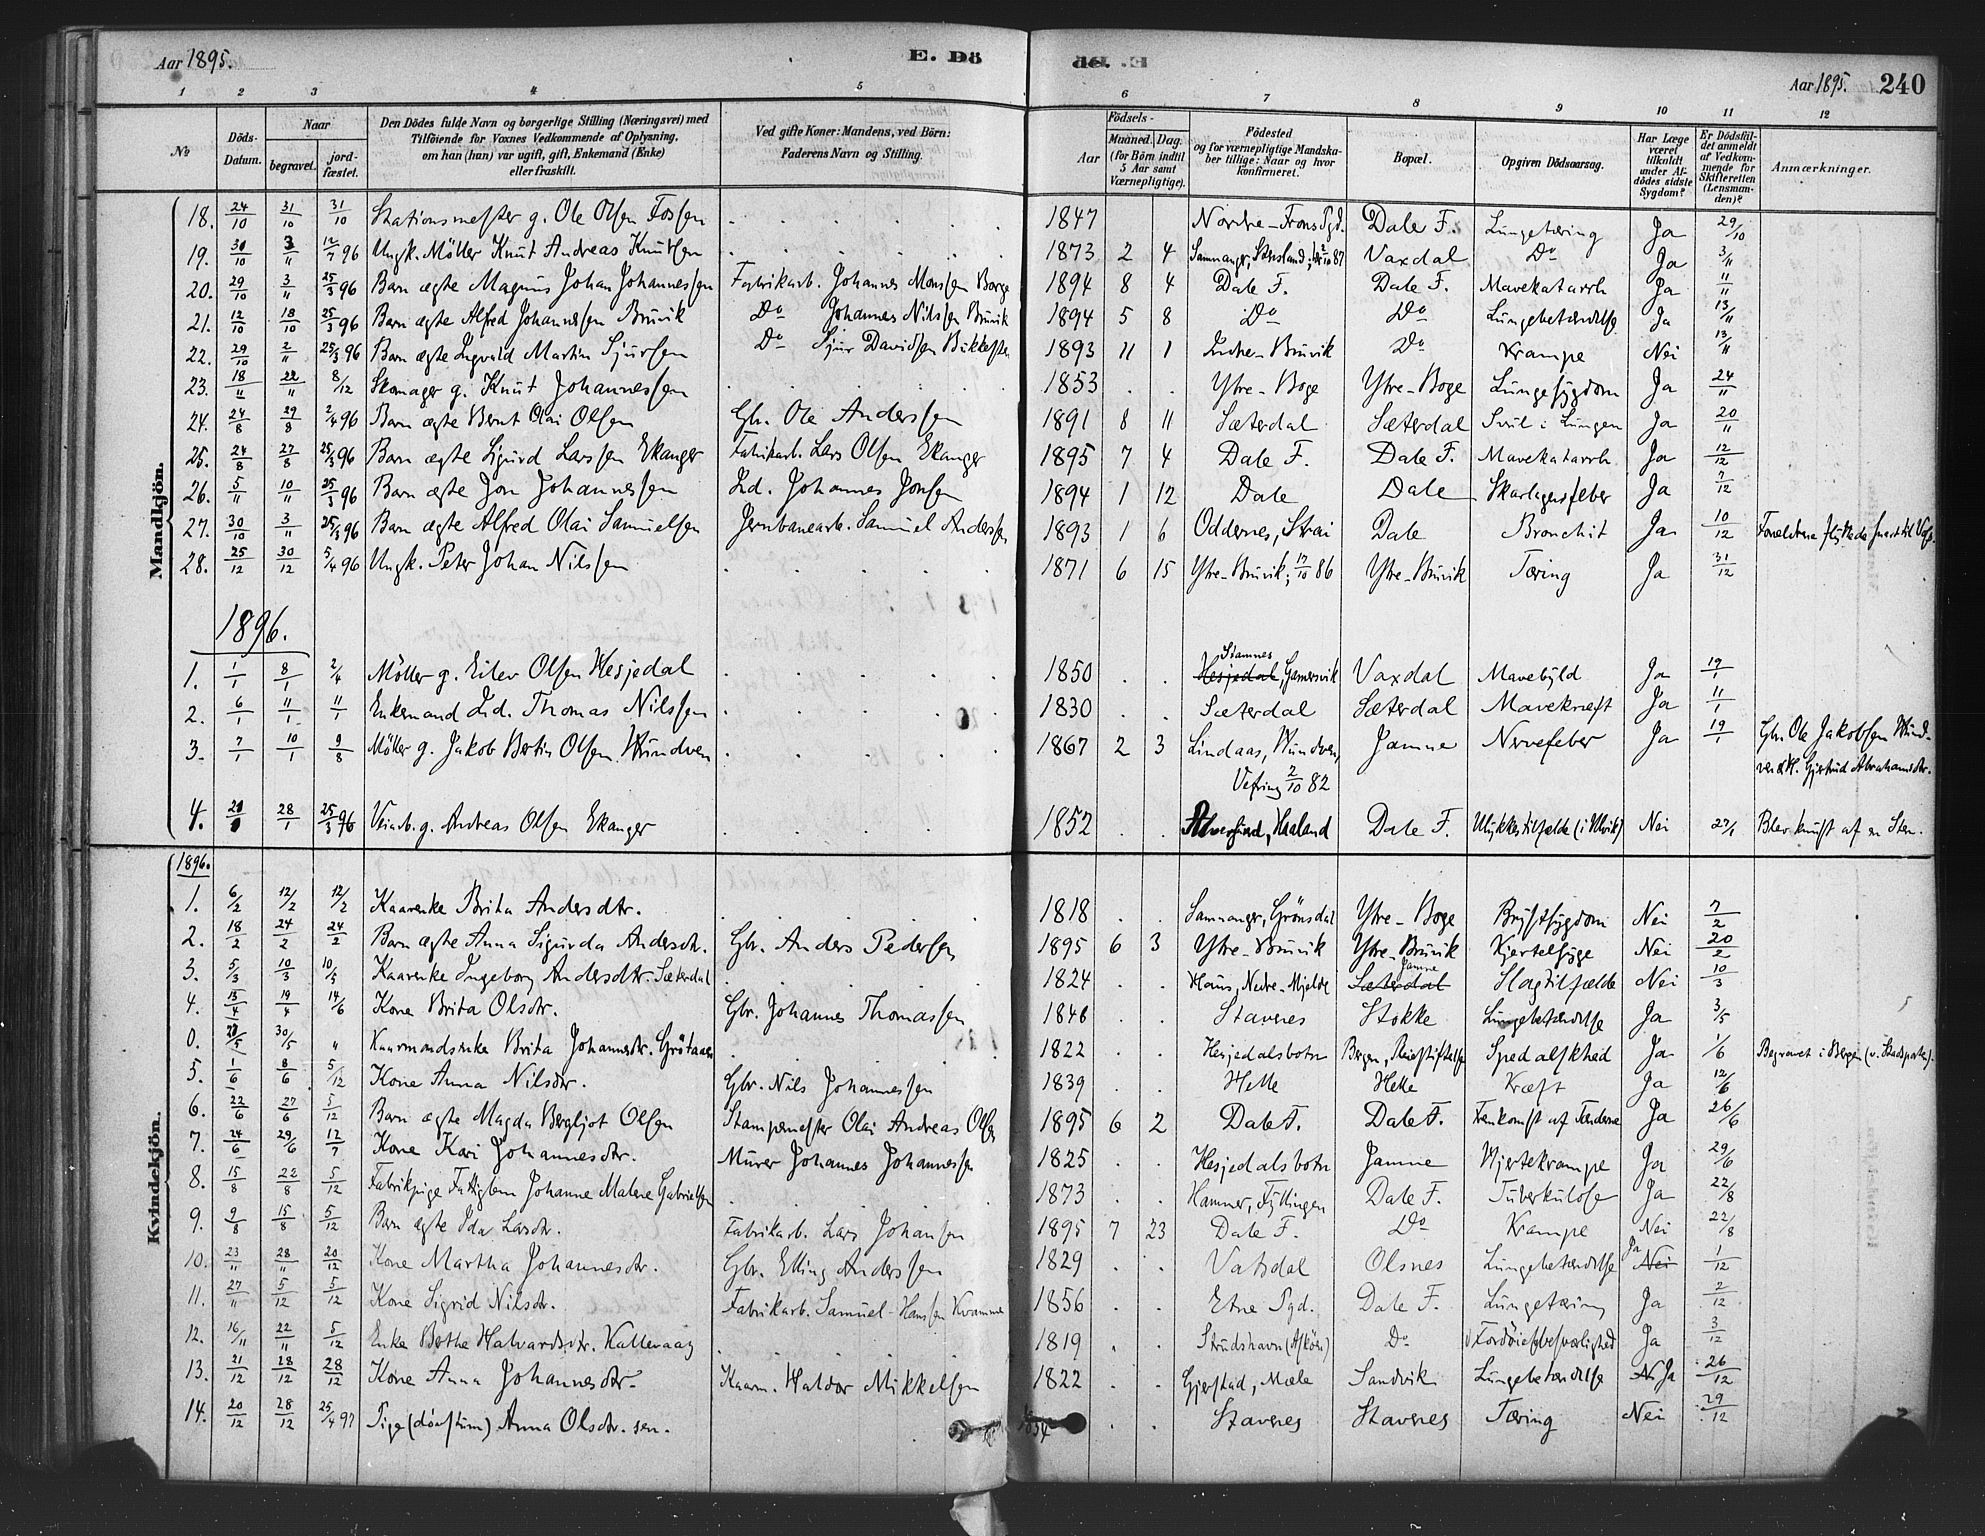 Aar 1895. E. Dö
Aar 1895. 240
1 2 3 4 5 6 7 8 9 10 11 12
No
Döds-Datum.
Naar
begravet.
jord-fæstet.
Den Dödes fulde Navn og borgerlige Stilling (Næringsvei) med
Tilföiende for Voxnes Vedkommende af Oplysning,
om han (hun) var ugift, gift, Enkemand (Enke)
eller fraskilt.
Ved gifte Koner: Mandens, ved Börn:
Faderens Navn og Stilling.
Födsels-
Aar
Maaned. Dag.
(for Börn indtil
5 Aar samt
Værnepligtige).
Födested
og for værnepligtige Mandska-
ber tillige: Naar og hvor
konfirmeret.
Bopæl.
Opgiven Dödsaarsag.
Har Læge
været
tilkaldt
under Af-
dödes sidste
Sygdom?
Er Dödsfal-
det anmeldt
af Vedkom-
mende for
Skifteretten
(Lensman-
den)?
Anmærkninger.
Mandkjön.
18. 24/10 31/10 31/10 Stationsmester g. Ole Olsen Fossen 1847 Nordre-Frons Pgd. Dale F. Lungetæring Ja 29/10
19. 30/10 3/11 12/7 96 Ungk. Möller Knut Andreas Knutsen 1873 2 4 Samnanger, Vaxdal Do Ja 3/11
20. 29/10 3/11 25/3 96 Barn ægte Magnus Johan Johannessen Fabrikarb. Johannes Monsen Borge 1894 8 4 Dale F. Dale F. Mavekatarrh Ja 11/11
21. 12/10 18/10 25/3 96 Barn ægte Alfred Johannessen Bruvik Do Johannes Nilssen Bruvik 1894 5 8 Do Do Lungebetændelse Ja 13/11
22. 29/10 2/11 25/3 96 Barn ægte Ingvald Martin Sjursen Do Sjur Davidsen 1893 11 1 Indre-Bruvik Do Krampe Nei 13/11
23. 18/11 22/11 8/12 Skomager g. Knut Johannessen 1853 Ytre-Boge Ytre-Boge Lungesygdom Ja 24/11
24. 24/8 29/8 2/4 96 Barn ægte Bernt Olai Olsen Gbr. Ole Anderssen 1891 8 11 Sæterdal Sæterdal Svul i Lungen Ja 20/11
25. 24/8 27/8 25/3 96 Barn ægte Sigurd Larssen Ekanger Fabrikarb. Lars Olsen Ekanger 1895 7 4 Dale F. Dale F. Mavekatarrh Ja 12/12
26. 5/11 10/11 25/3 96 Barn ægte Jon Johannessen Ind. Johannes Jonsen 1894 1 12 Dale Dale Skarlagensfeber Ja 7/12
27. 30/10 3/11 25/3 96 Barn ægte Alfred Olai Samuelsen Jernbanearb. Samuel Anderssen 1893 1 6 Oddernes, Strai Dale Bronchit Ja 10/12 Forældrene flyttede snart til
28. 25/12 30/12 5/4 96 Ungk. Peter Johan Nilssen 1871 6 15 Ytre-Bruvik; 17/10 86 Ytre-Bruvik Tæring Ja 31/12
1896.
1. 1/1 8/1 2/4 Möller g. Eilev Olsen Hesjedal 1850 Hesjedal, Stamnes Gamersvik Vaxdal Mavebyld Ja 19/1
2. 6/1 11/1 11/1 Enkemand Ind. Thomas Nilssen 1830 Sæterdal Sæterdal Mavekræft Ja 11/1
3. 7/1 10/1 9/8 Möller g. Jakob Bertin Olsen Hundven 1867 2 3 Lindaas, Hundven, Jamne Nervefeber Ja 19/1 Gbr. Ole Jakobsen Hund-
Vefring 2/10 82 ven & H. Gjertrud Abrahamsdtr.
4. 28/1 25/3 96 Veiarb. g. Andreas Olsen Ekanger 1852 Alversund, Haaland Dale F. Ulykkestilfælde (i Ulvik) Nei 27/1 Blev knust af en Sten.
1896.
Kvindekjön.
1. 6/2 12/2 12/2 Kaarenke Brita Andersdtr. 1818 Samnanger, Grönsdal Ytre-Boge Brystsygdom Nei 7/2
2. 18/2 24/2 24/2 Barn ægte Anna Sigurda Andersdtr. Gbr. Anders Pedersen 1895 6 3 Ytre-Bruvik Ytre-Bruvik Kjertelsyge Nei 20/2
3. 5/3 10/3 10/5 Kaarenke Ingeborg Andersdtr. Sæterdal 1824 Haus, Nedre-Mjelde Sæterdal Jamne Slagtilfælde Nei 10/3
4. 13/4 19/4 14/6 Kone Brita Olsdtr. Gbr. Johannes Thomassen 1846 Stavenes Stokke Lungebetændelse Ja 3/5
0. 30/5 " Kaarmandsenke Brita Johannesdtr. Grötaas 1822 Hesjedalsbotn Bergen, Spedalskhed Ja 1/6 Begravet i Bergen (v. Stadsporten).
5. 1/6 8/6 5/12 Kone Anna Nilsdtr. Gbr. Nils Johannessen 1839 Helle Helle Kræft Ja 12/6
6. 22/6 27/6 5/12 Barn ægte Magda Bergljot Olsen Stampemester Olai Andreas Olsen 1895 6 2 Dale F. Dale F. Fremkomst af Tænderne Ja 26/6
7. 24/6 29/6 12/7 Kone Kari Johannesdtr. Murer Johannes Johannessen 1825 Hesjedalsbotn Jamne Hjertekrampe Ja 29/6
8. 15/8 22/8 5/12 Fabrikpige Fattiglem Johanne Malene Gabrielsen 1873 Hammer, Fyllingen Dale F. Tuberkulose Ja 22/8
9. 9/8 15/8 5/12 Barn ægte Ida Larsdtr. Fabrikarb. Lars Johansen 1895 7 23 Dale F. Do Krampe Nei 22/8
10. 23/11 28/11 20/12 Kone Martha Johannesdtr. Gbr. Elling Anderssen 1829 Vatsdal Olsnes Lungebetændelse Ja Nei 1/12
11. 27/11 5/12 5/12 Kone Sigrid Nilsdtr. Fabrikarb. Samuel Hanssen Kvamme 1856 Etne Pgd. Dale F. Lungetæring Ja 2/12
12. 16/11 22/11 5/12 Enke Berthe Halvardsdtr. Kallevaag 1819 Strudshavn (Asköen) Do Fordöielsesbesværlighed Ja 3/12
13. 21/12 28/12 28/12 Kone Anna Johannesdtr. Kaarm. Haldor Mikkelsen 1822 Gjerstad, Mæle Sandvik Lungebetændelse Ja 26/12
14. 20/12 28/12 25/4 97 Pige (döfstum) Anna Olsdtr. sen. 1854 Stavenes Stavenes Tæring Nei 29/12